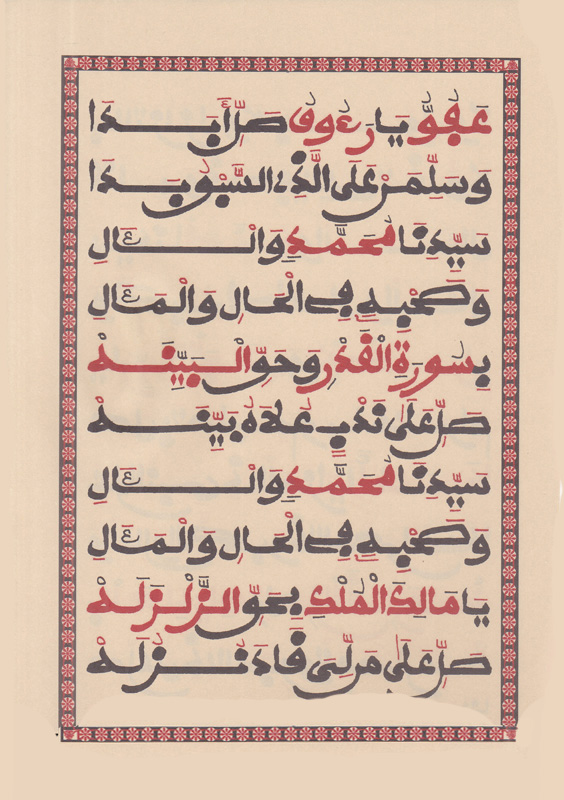 عَفُوُّ يَا رَءُوفُ صَلِّ أَبَدَا
وَسَلِّمَنْ عَلَى الَّذِي السَّبْقُ بَدَا
سَيِّدِنَا مُحَمَّدٍ وَالْآلِ
وَصَحْبِهِ فِي الْحَالِ وَالْمَآلِ
بِسُورَةِ الْقَدْرِ وَحَقِّ الْبَيِّنَهْ
صَلِّ عَلَى نَدْبٍ عُلَاهُ بَيِّنَهْ
سَيِّدِنَا مُحَمَّدٍ وَالْآلِ
وَصَحْبِهِ فِي الْحَالِ وَالْمَآلِ
يَا مَالِكَ الْمُلْكِ بِحَقِّ الزَّلْزَلَهْ
صَلِّ عَلَى مَن لِّي قَادَ نُزُلَهْ